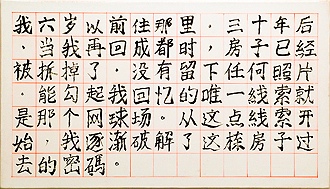 我六岁以前住那里，三十年后
，当我再回成都时，房子已经
被拆掉了，没有留下任何照片
，能勾起我回忆的唯一线索就
是那个网球场。从这点线索开
始，我逐渐破解了这栋房子过
去的密碼。